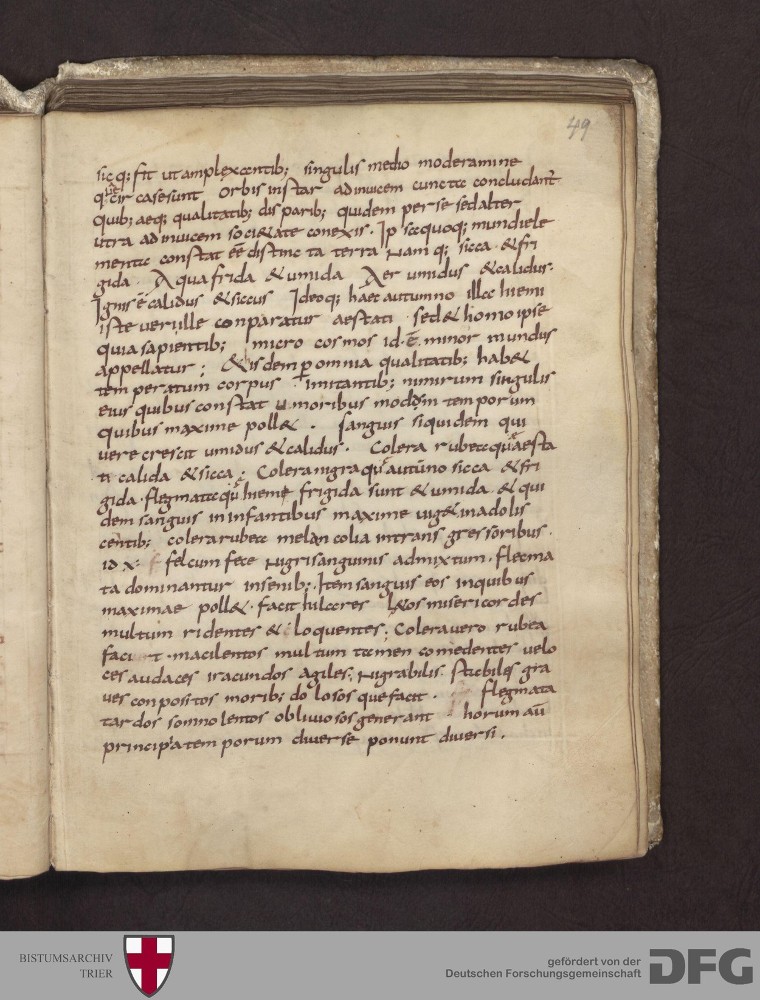 49
sicq; fit ut amplexantib; singulis medio moderamine
casesunt orbis instar adinuicem cuncta concludant
quib; aeq; qualitatib; disparib; quidem per se sed alter
utra adinuicem soci&ate conexis. Ipsaquoq; mundiele
menta constat eē distincta terra Namq; sicca & fri
gida . Aqua frida & umida Aer umidus & calidus.
Ignis ē calidus & siccus Ideoq; haec autumno illa hiemi
iste ueri ille conparatur aestati sed & homo ipse
quia sapientib; micro cosmos id . ē . minor mundus
appellatur ; & isdem p omnia qualitatib; hab&
temperatum corpus imitantib; nimirum singulis
eius quibus constat umoribus temporum
quibus maxime poll& . Sanguis siquidem qui
uere crescit umidus & calidus . Colera rubea aesta
ti calida & sicca ; Colera nigra autūno sicca & fri
gida . flegmata hieme frigida sunt & umida . & qui
dem sanguis in infantibus maxime uig& in adolis
centib; colera rubea melan colia in trans gressoribus .
id x . fel cum fece nigri sanguinis admixtum . flecma
ta dominantur in senib; . Item sanguis eos in quibus
maximae poll& . facit hilares & eos misericordes
multum ridentes & loquentes ; Colera uero rubea
faciunt . macilentos multum tamen comedentes uelo
ces audaces iracundos agiles ; nigra bilis . Stabiles gra
ues conpositos morib; dolosos que facit . flegmata
tardos somnolentos obliuiosos generant horum aū
principia temporum diuerse ponunt diuersi .
BISTUMSARCHIV
TRIER
gefördert von der
Deutschen Forschungsgemeinschaft
DFG